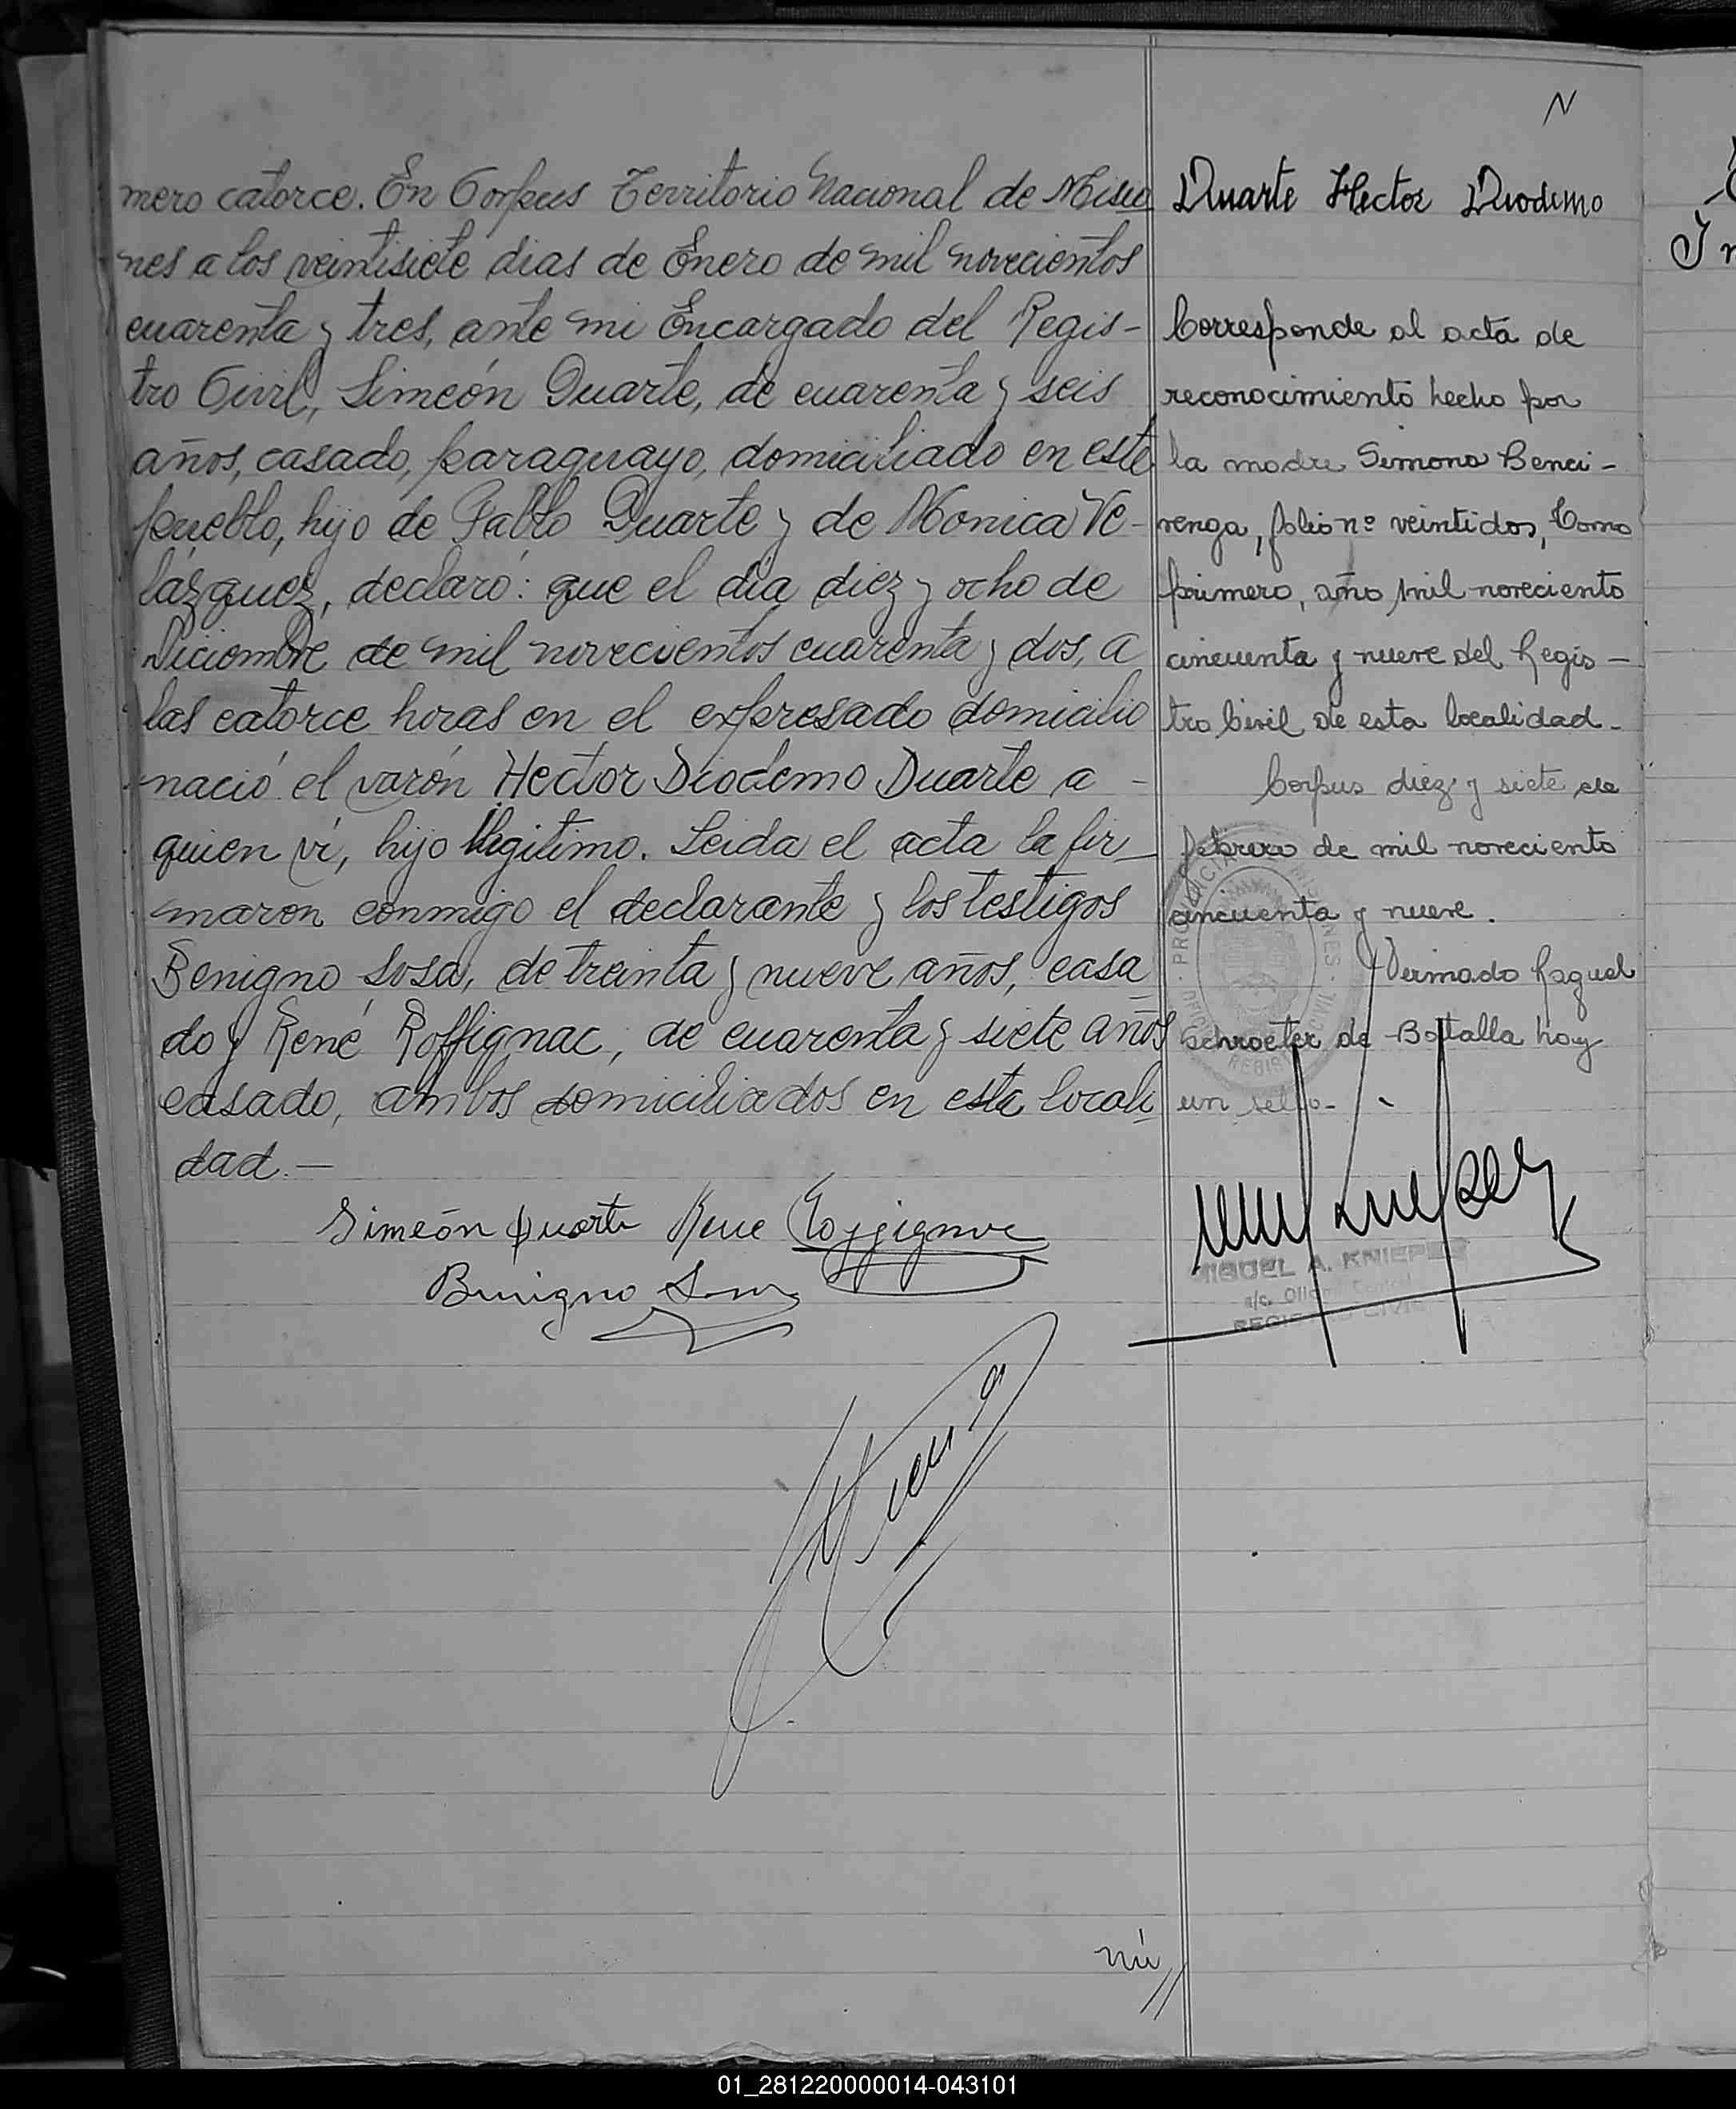 N
mero catorce. En Corpus Territorio Nacional de Misio
nes a los veintisiete dias de Enero de mil novecientos
cuarenta y tres, ante mi Encargado del Regis-
tro Civil, Simeón Duarte, de cuarenta y seis
años, casado, paraguayo, domiciliado en este
pueblo, hijo de Pablo Duarte y de Monica Ve-
lázquez, declaró: que el dia diez y ocho de
Diciembre de mil novecientos cuarenta y dos, a
las catorce horas en el expresado domicilio
nació el varón Hector Diodemo Duarte a-
quien ví, hijo ilegitimo. Leida el acta la fir-
maron conmigo el declarante y los testigos
Benigno Sosa, de treinta y nueve años, casa
do y René Roffignac, de cuarenta y siete años
casado, ambos domiciliados en esta locali
dad.—
Simeón Duarte Rene Roffignac
Benigno Sosa
nú
Duarte Hector Diodemo
Corresponde al acta de
reconocimiento hecho por
la madre Simona Benci-
venga, folio nº veintidos, Tomo
primero, año mil noveciento
cincuenta y nueve del Regis-
tro Civil de esta localidad.
Corpus diez y siete de
febrero de mil noveciento
cincuenta y nueve.
Firmado Raquel
Schroeter de Bottalla hay
un sello-
MIGUEL A. KNIEP
a/c. Ofic
REGISTRO CIVIL
01_281220000014-043101